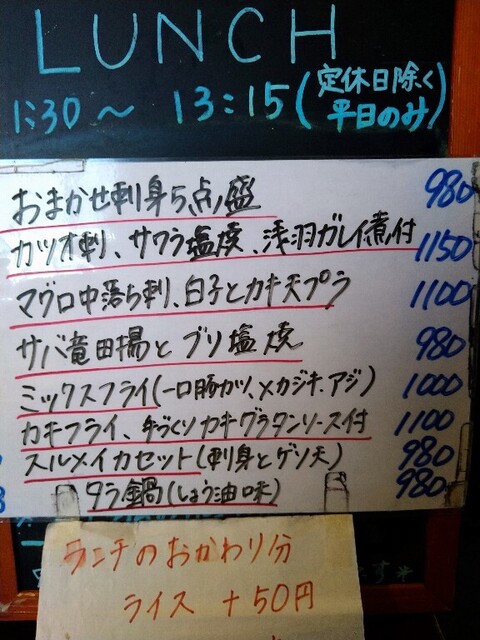 LUNCH
1:30～13:15(定休日除く
平日のみ)
おまかせ刺身5点盛 980
カツオ刺、サワラ塩焼、浅羽ガレイ煮付 1150
マグロ中落ち刺、白子とカキ天プラ 1100
サバ竜田揚とブリ塩焼 980
ミックスフライ(一口豚カツ、メカジキ、アジ) 1000
カキフライ、手づくりカキグラタンソース付 1100
スルメイカセット(刺身とゲソ天) 980
タラ鍋(しょう油味) 980
ランチのおかわり分
ライス +50円